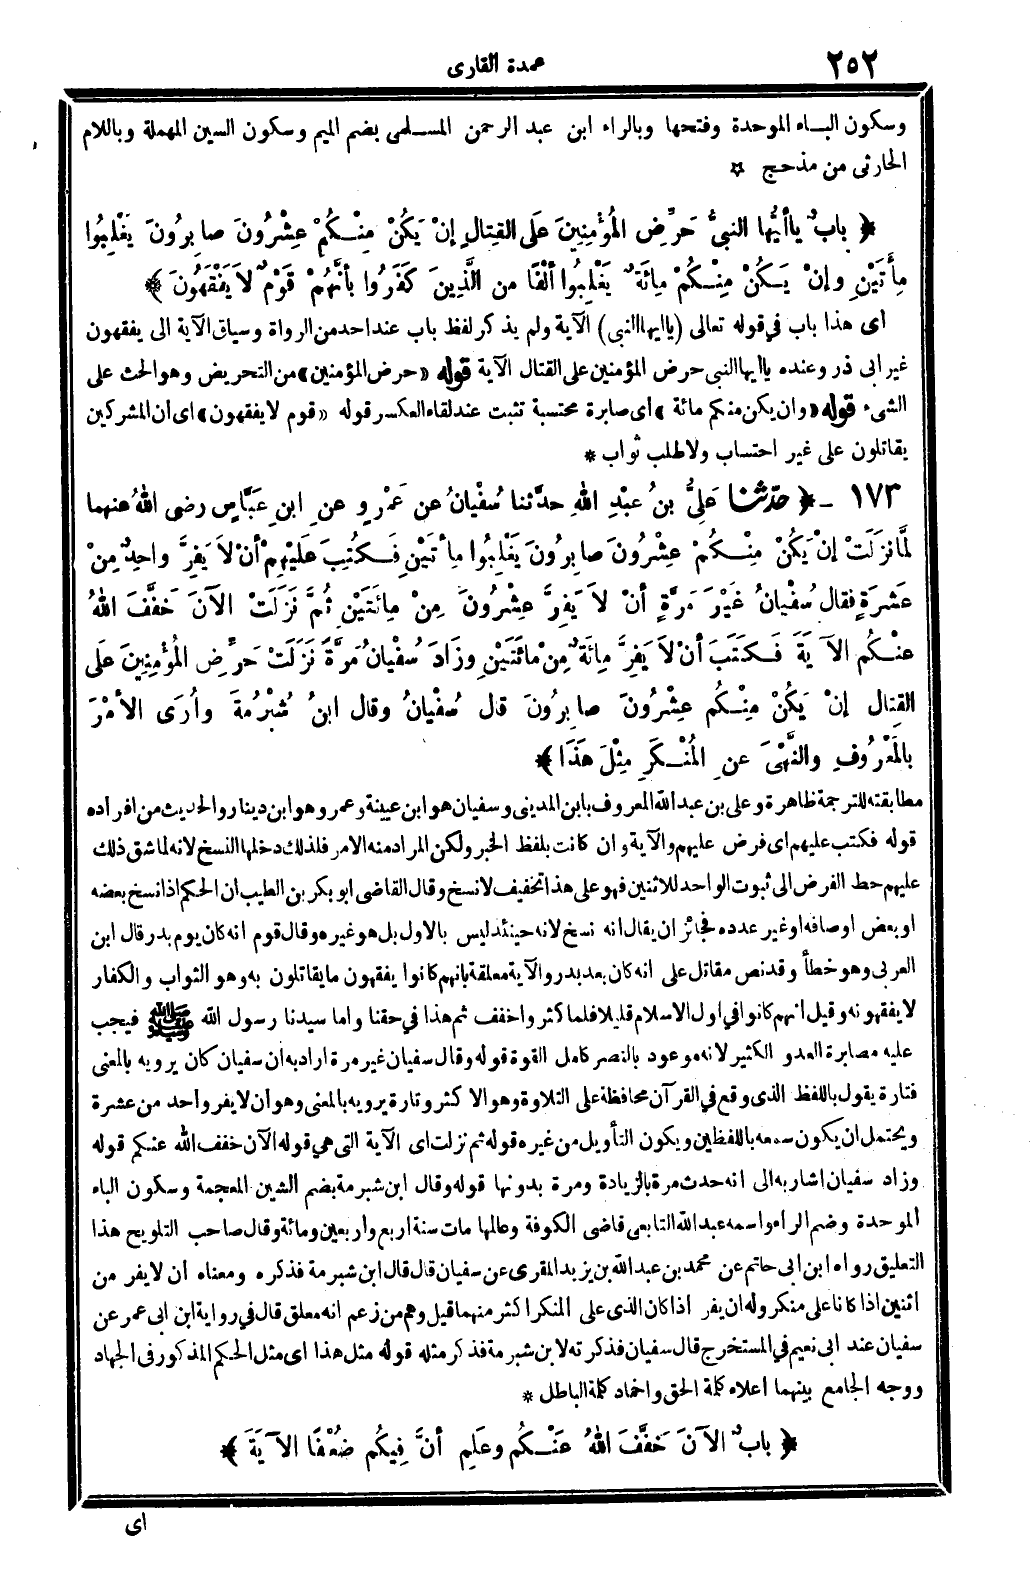 ٢٥٢
عمدة القارى
وسكون البـاء الموحدة وفتحها وبالراء ابن عبد الرحمن المسـلمى بضم الميم وسكون السين المهملة وباللام
الحارثى من مذحج ☆
﴿ بابٌ ياأيُّها النبيُّ حَرِّضِ المُؤْمِنِينَ عَلَى القِتالِ إنْ يَكُنْ مِنْـكُمْ عِشْرُونَ صابِرُونَ يَغْلِبُوا
مِأَتَيْنِ وإنْ يَـكُنْ مِنْـكُمْ مِائَةٌ يَغْلِبُوا ألْفًا من الَّذِينَ كَفَرُوا بأنَّهُمْ قَوْمٌ لاَ يَفْقَهُونَ ﴾
اى هذا باب فى قوله تعالى (ياايهاالنبى) الآية ولم يذكر لفظ باب عنداحد من الرواة وسياق الآية الى يفقهون
غير ابى ذر وعنده ياايهاالنبى حرض المؤمنين على القتال الآية قوله «حرض المؤمنين» من التحريض وهوالحث على
الشىء قوله «وان يكن منكم مائة» اى صابرة محتسبة تثبت عند لقاء العكسر قوله «قوم لا يفقهون» اى ان المشركين
يقاتلون على غير احتساب ولا طلب ثواب *
١٧٣ ـ ﴿ حَدَّثنا عَلِىُّ بنُ عبْدِ اللهِ حدَّثنا سُفْيانُ عن عَمْرٍو عنِ ابنِ عَبَّاسٍ رضى اللهُ عنهما
لمَّا نزَلَتْ إنْ يَكُنْ مِنْـكُمْ عِشْرُونَ صابِرُونَ يَغْلِبُوا مِأتَيْنِ فَـكُتِبَ عَلَيْهِمْ أنْ لاَ يَفِرَّ واحِدٌ مِنْ
عَشَرَةٍ فقال سُفْيانُ غَيْرَ مَرَّةٍ أنْ لاَ يَفِرَّ عِشْرُونَ مِنْ مِائَتَيْنِ ثُمَّ نَزَلَتْ الآنَ خَفَّفَ اللهُ
عنْـكُم الآيَةَ فَـكَتَبَ أنْ لاَ يَفِرَّ مِائَةٌ مِنْ مائَتَيْنِ وزَادَ سُفْيانُ مَرَّةً نَزَلَتْ حَرِّضِ المُؤْمِنِينَ عَلَى
القِتالِ إنْ يَكُنْ مِنْـكُم عِشْرُونَ صابِرُونَ قال سُفْيانُ وقال ابنُ شُبْرُمةَ وأُرَى الأمْرَ
بالمَعْرُوفِ والنَّهْىَ عنِ المُنْـكَرِ مِثْلَ هَذَا ﴾
مطابقته للترجمة ظاهرة وعلى بن عبدالله المعروف بابن المدينى وسفيان هو ابن عيينة وعمرو هو ابن دينار والحديث من افراده
قوله فكتب عليهم اى فرض عليهم والآية وان كانت بلفظ الخبر ولكن المراد منه الامر فلذلك دخلها النسخ لانه لما شق ذلك
عليهم حط الفرض الى ثبوت الواحد للاثنين فهو على هذا تخفيف لا نسخ وقال القاضى ابو بكر بن الطيب ان الحكم اذا نسخ بعضه
او بعض اوصافه او غير عدده فجائز ان يقال انه نسخ لانه حينئذ ليس بالاول بل هو غيره وقال قوم انه كان يوم بدر قال ابن
العربى وهو خطأ وقد نص مقاتل على انه كان بعد بدر والآية معلقة بانهم كانوا يفقهون ما يقاتلون به وهو الثواب والكفار
لا يفقهونه وقيل انهم كانوا فى اول الاسلام قليلا فلما كثروا خفف ثم هذا فى حقنا واما سيدنا رسول الله ﷺ فيجب
عليه مصابرة العدو الكثير لانه موعود بالنصر كامل القوة قوله وقال سفيان غير مرة اراد به أن سفيان كان يرويه بالمعنى
فتارة يقول باللفظ الذى وقع فى القرآن محافظة على التلاوة وهو الاكثر وتارة يرويه بالمعنى وهو ان لا يفر واحد من عشرة
ويحتمل ان يكون سمعه باللفظين ويكون التأويل من غيره قوله ثم نزلت اى الآية التى هى قوله الآن خفف الله عنكم قوله
وزاد سفيان اشار به الى انه حدث مرة بالزيادة ومرة بدونها قوله وقال ابن شبرمة بضم الشين المعجمة وسكون الباء
الموحدة وضم الراء واسمه عبدالله التابعى قاضى الكوفة وعالمها مات سنة اربع واربعين ومائة وقال صاحب التلويح هذا
التعليق رواه ابن ابى حاتم عن محمد بن عبدالله بن يزيد المقرى عن سفيان قال قال ابن شبرمة فذكره ومعناه أن لا يفر من
اثنين اذا كانا على منكر وله ان يفر اذا كان الذى على المنكر اكثر منهما قيل وهم من زعم انه معلق قال فى رواية ابن ابى عمر عن
سفيان عند ابى نعيم فى المستخرج قال سفيان فذكرته لابن شبرمة فذكر مثله قوله مثل هذا اى مثل الحكم المذكور فى الجهاد
ووجه الجامع بينهما اعلاء كلمة الحق واخماد كلمة الباطل *
﴿ بابٌ الآنَ خَفَّفَ اللهُ عَنْـكُم وعَلِمَ أنَّ فِيكُم ضُعْفًا الآيَةَ ﴾
اى